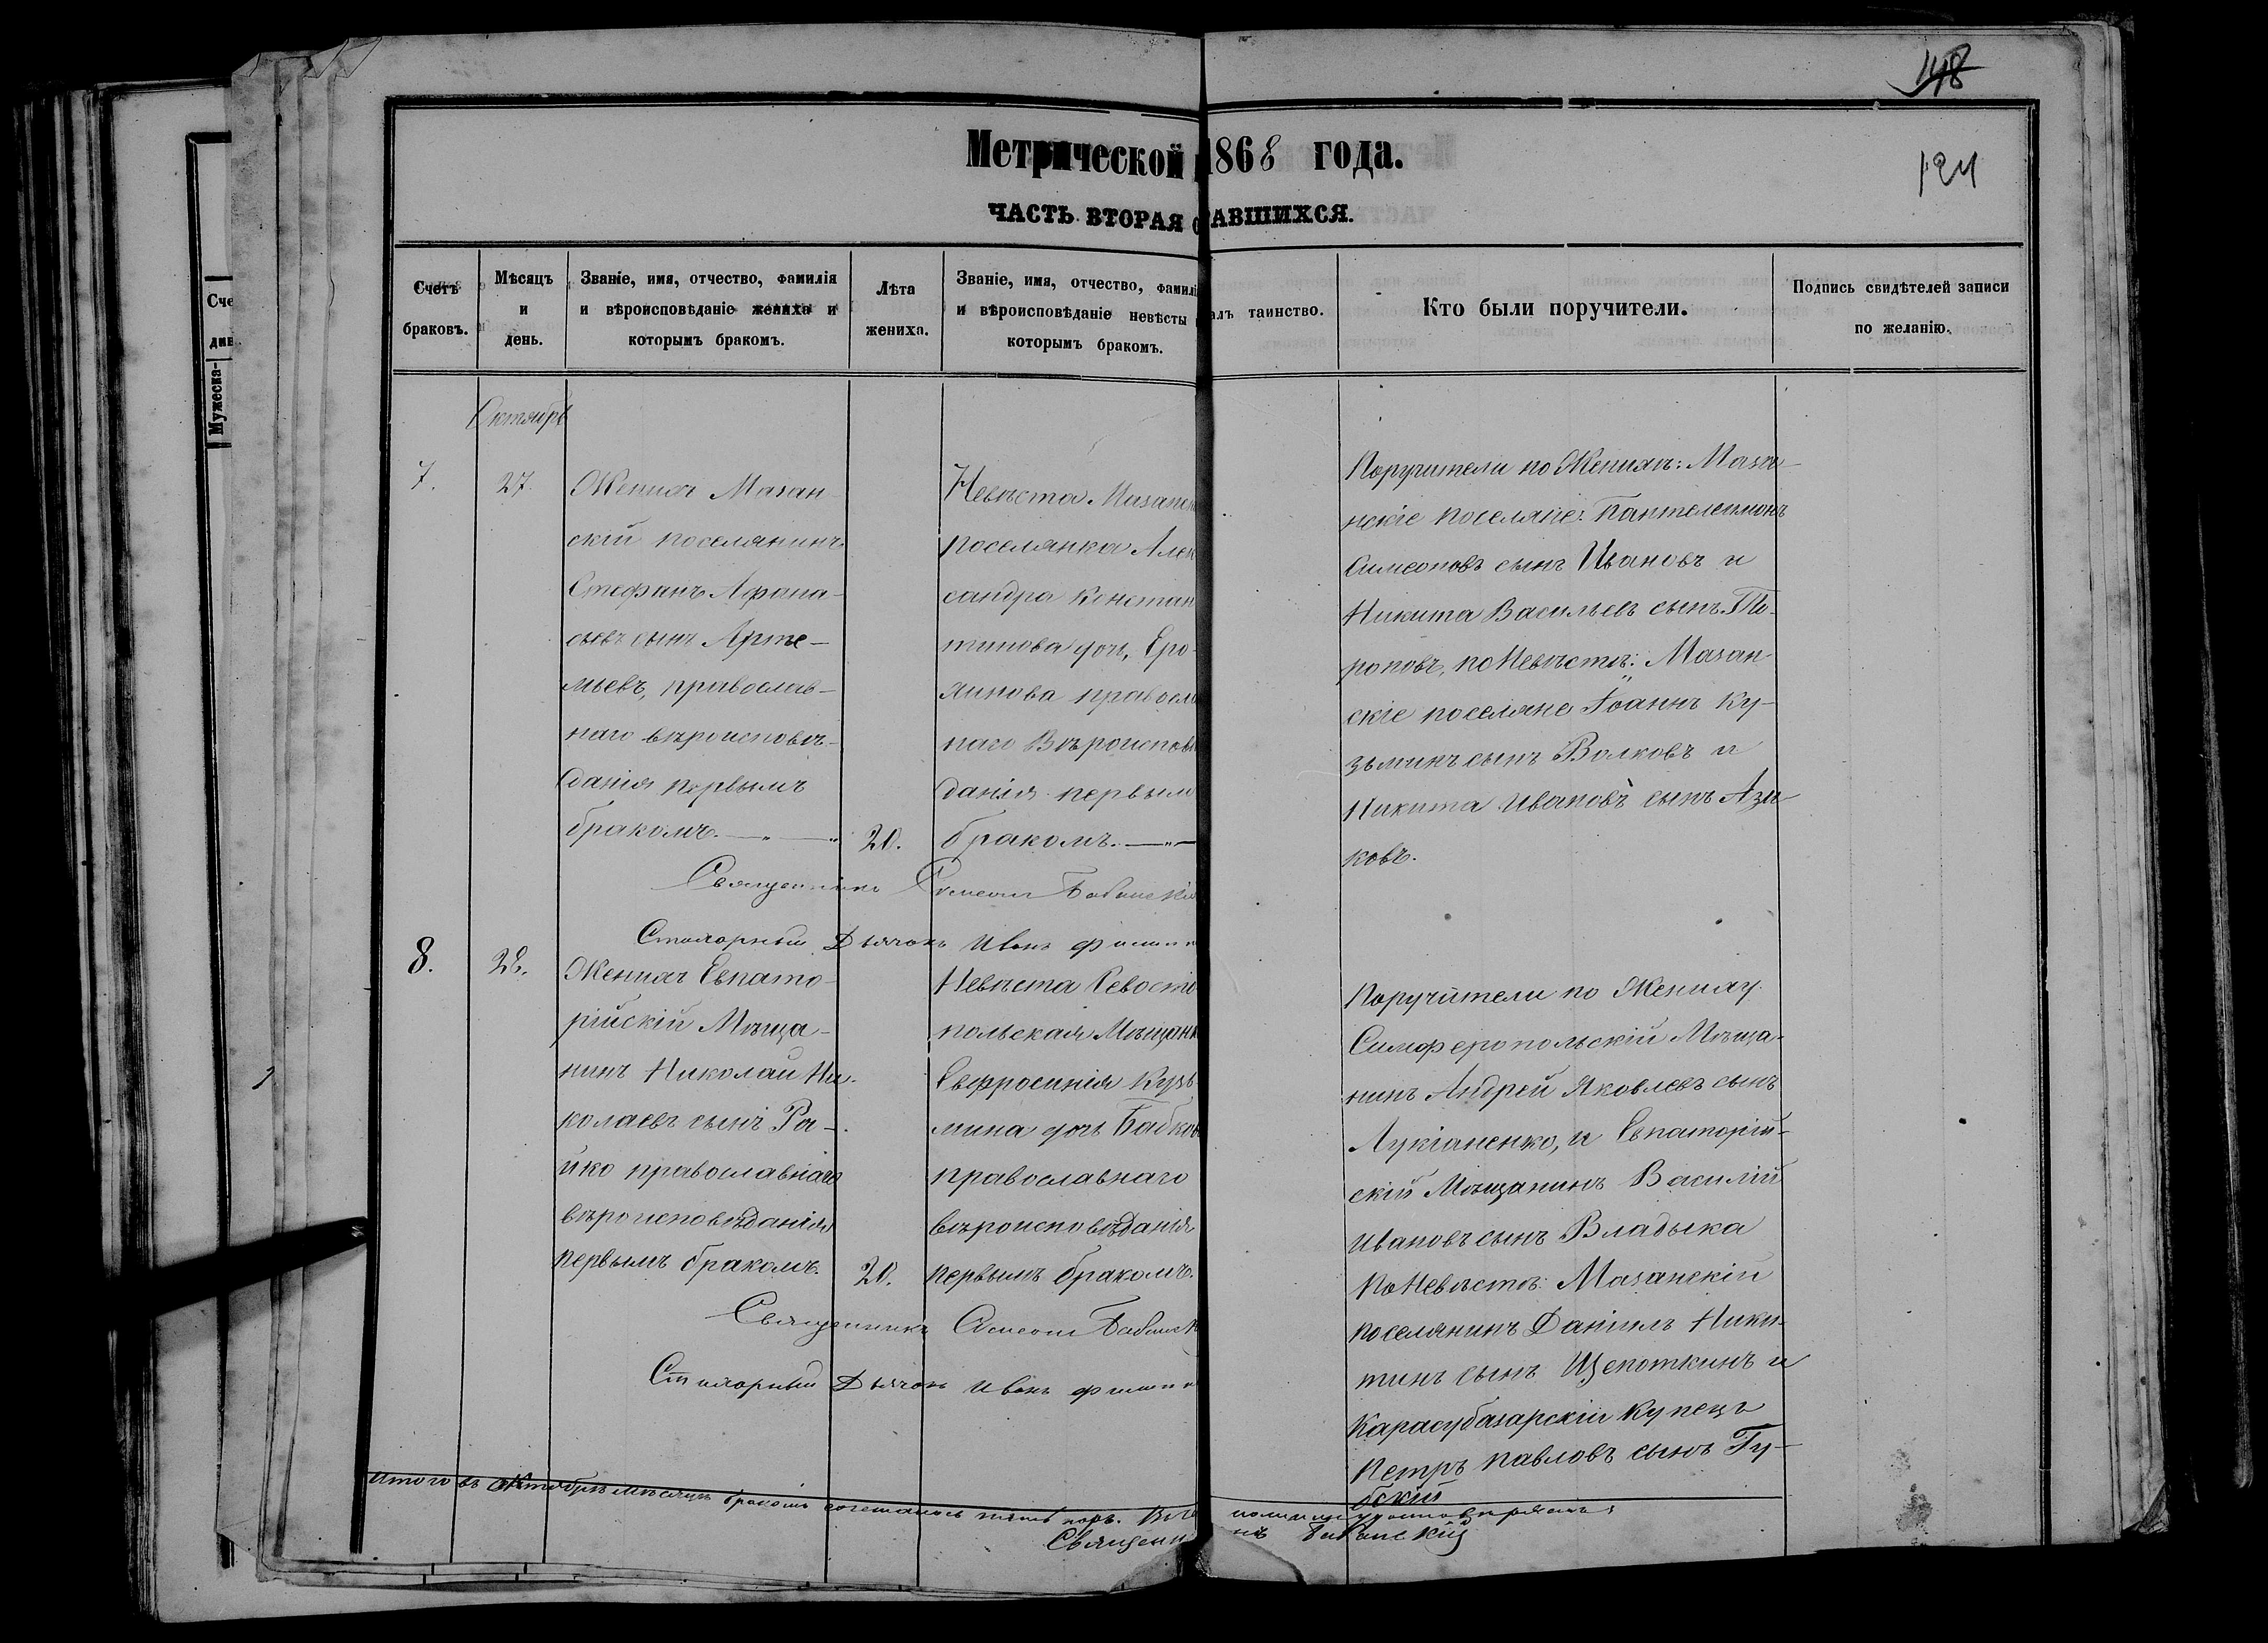 148
124
Метрической 1868 года.
ЧАСТЬ ВТОРАЯ АВШИХСЯ.
Счетъ браковъ.
Мѣсяцъ и день.
Званіе, имя, отчество, фамилія
и вѣроисповѣданіе жениха и
которымъ бракомъ.
Лѣта жениха.
Званіе, имя, отчество, фамилі
и вѣроисповѣданіе невѣсты
которымъ бракомъ.
алъ таинство.
Кто были поручители.
Подпись свидѣтелей записи
по желанію.
Сче
див
Мужеска-
Октябрь
7.
27.
Женихъ Мазан-
скій поселянинъ
Стефанъ Афана-
сьевъ сынъ Арте-
мьевъ, православ-
наго вѣроисповѣ-
данія первымъ
бракомъ.
20.
Невѣста Мазанск
поселянка Алек
сандра Констан
тинова дочь, Еро-
правосла
наго Вѣроисповѣ
данія первым
бракомъ.
Поручители по Женихѣ: Маза-
нскіе поселяне: Пантелеимонъ
Симеоновъ сынъ Ивановъ и
Никита Васильевъ сынъ
роповъ, по Невѣстѣ: Мазан-
скіе поселяне Іоаннъ Ку-
зьминъ сынъ Волковъ и
Никита Ивановъ сынъ Ази-
ковъ.
Священникъ Симеонъ
Дьячокъ Иванъ
8.
28.
Женихъ Евпато-
рійскій Мѣща-
нинъ Николай Ни-
колаевъ сынъ Ра-
йко православнаго
вѣроисповѣданія
первымъ бракомъ.
20.
Невѣста Севосто
польская Мѣщанк
Евфросинія Кузь
мина дочь Бабков
православнаго
вѣроисповѣданія
первымъ бракомъ.
Поручители по Жениху
Симферопольскій Мѣща-
нинъ Андрей Яковлевъ сынъ
Лукіаненко, и Евпаторій-
скій Мѣщанинъ Василій
Ивановъ сынъ Владыка
По Невѣстѣ: Мазанскій
поселянинъ Даніилъ Ники-
тинъ сынъ Щепоткинъ и
Карасубазарскій Купецъ
Петръ Павловъ сынъ Гу-
бскій
Священникъ Симеонъ
Дьячокъ Иванъ
Итого въ Октябрѣ мѣсяцѣ бракомъ сочеталось паръ.
Священн